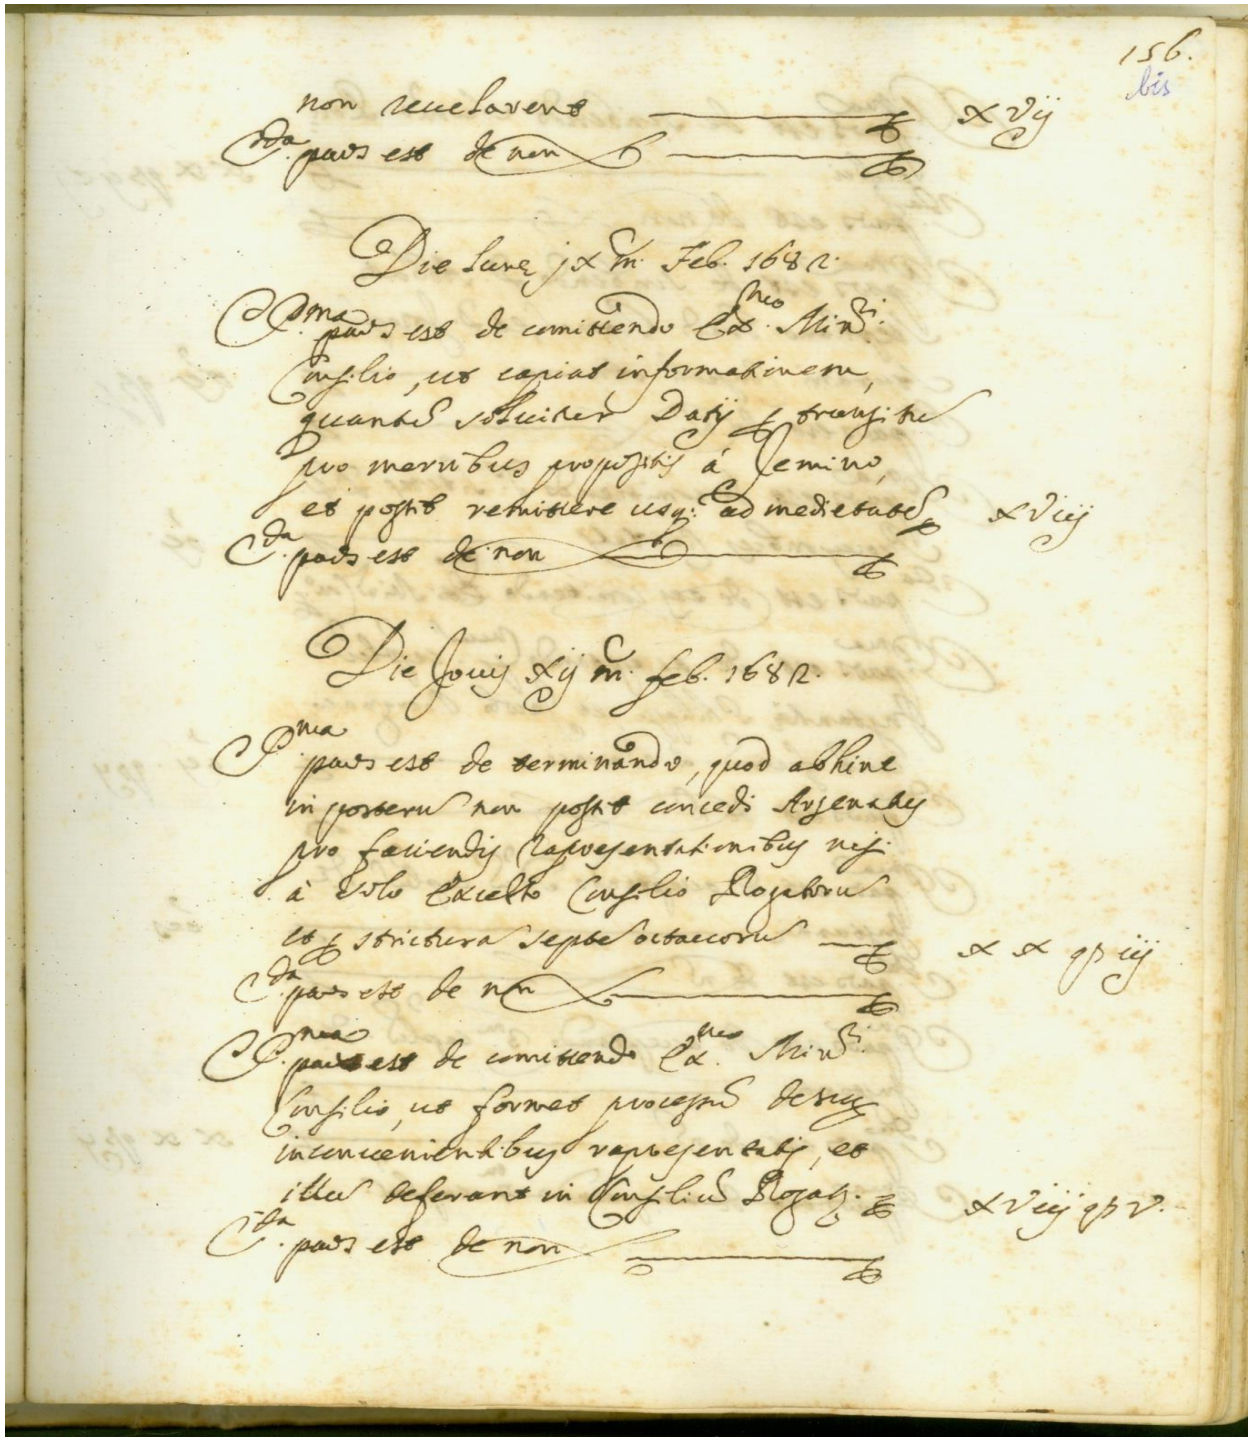 156.
bis
non revelarent xvij
2da pars est de non
Die Lunę ix m. Feb. 1682.
Pma pars est de comittendo Exmo Minri
Consilio, ut capiat informationem,
quantũ solvitur Datij ꝑ transitu
pro mercibus propositis à Jemino,
et possit remittere usq: ad medietatẽ xviij
2da pars est de non
Die Jovis xij m. feb. 1682.
Pma
pars est de terminando, quod abhinc
in posterũ non possit concedi Arsenalis
pro faciendis rapresentationibus nisi
à solo Excelso Consilio Rogatorũ
et ꝑ strictura septẽ octavorũ x x qp iij
2da pars est de non
Pma pars est de comittendo Exmo Minri
Consilio, ut formet processũ de
inconvenientibus rapresentatis, et
illũ deferant in Consiliũ Rogat. xviij qp v.
2da pars est de non